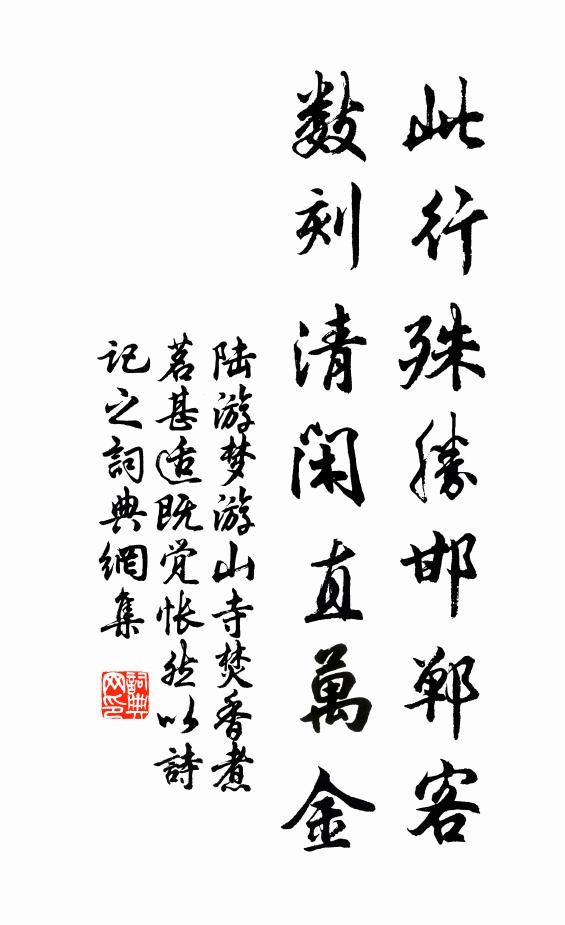 此行殊勝邯鄲客
数刻清閑直萬金
陆游梦游山寺焚香煮
茗甚适既觉怅然以詩
記之詞典網集
詞典网印